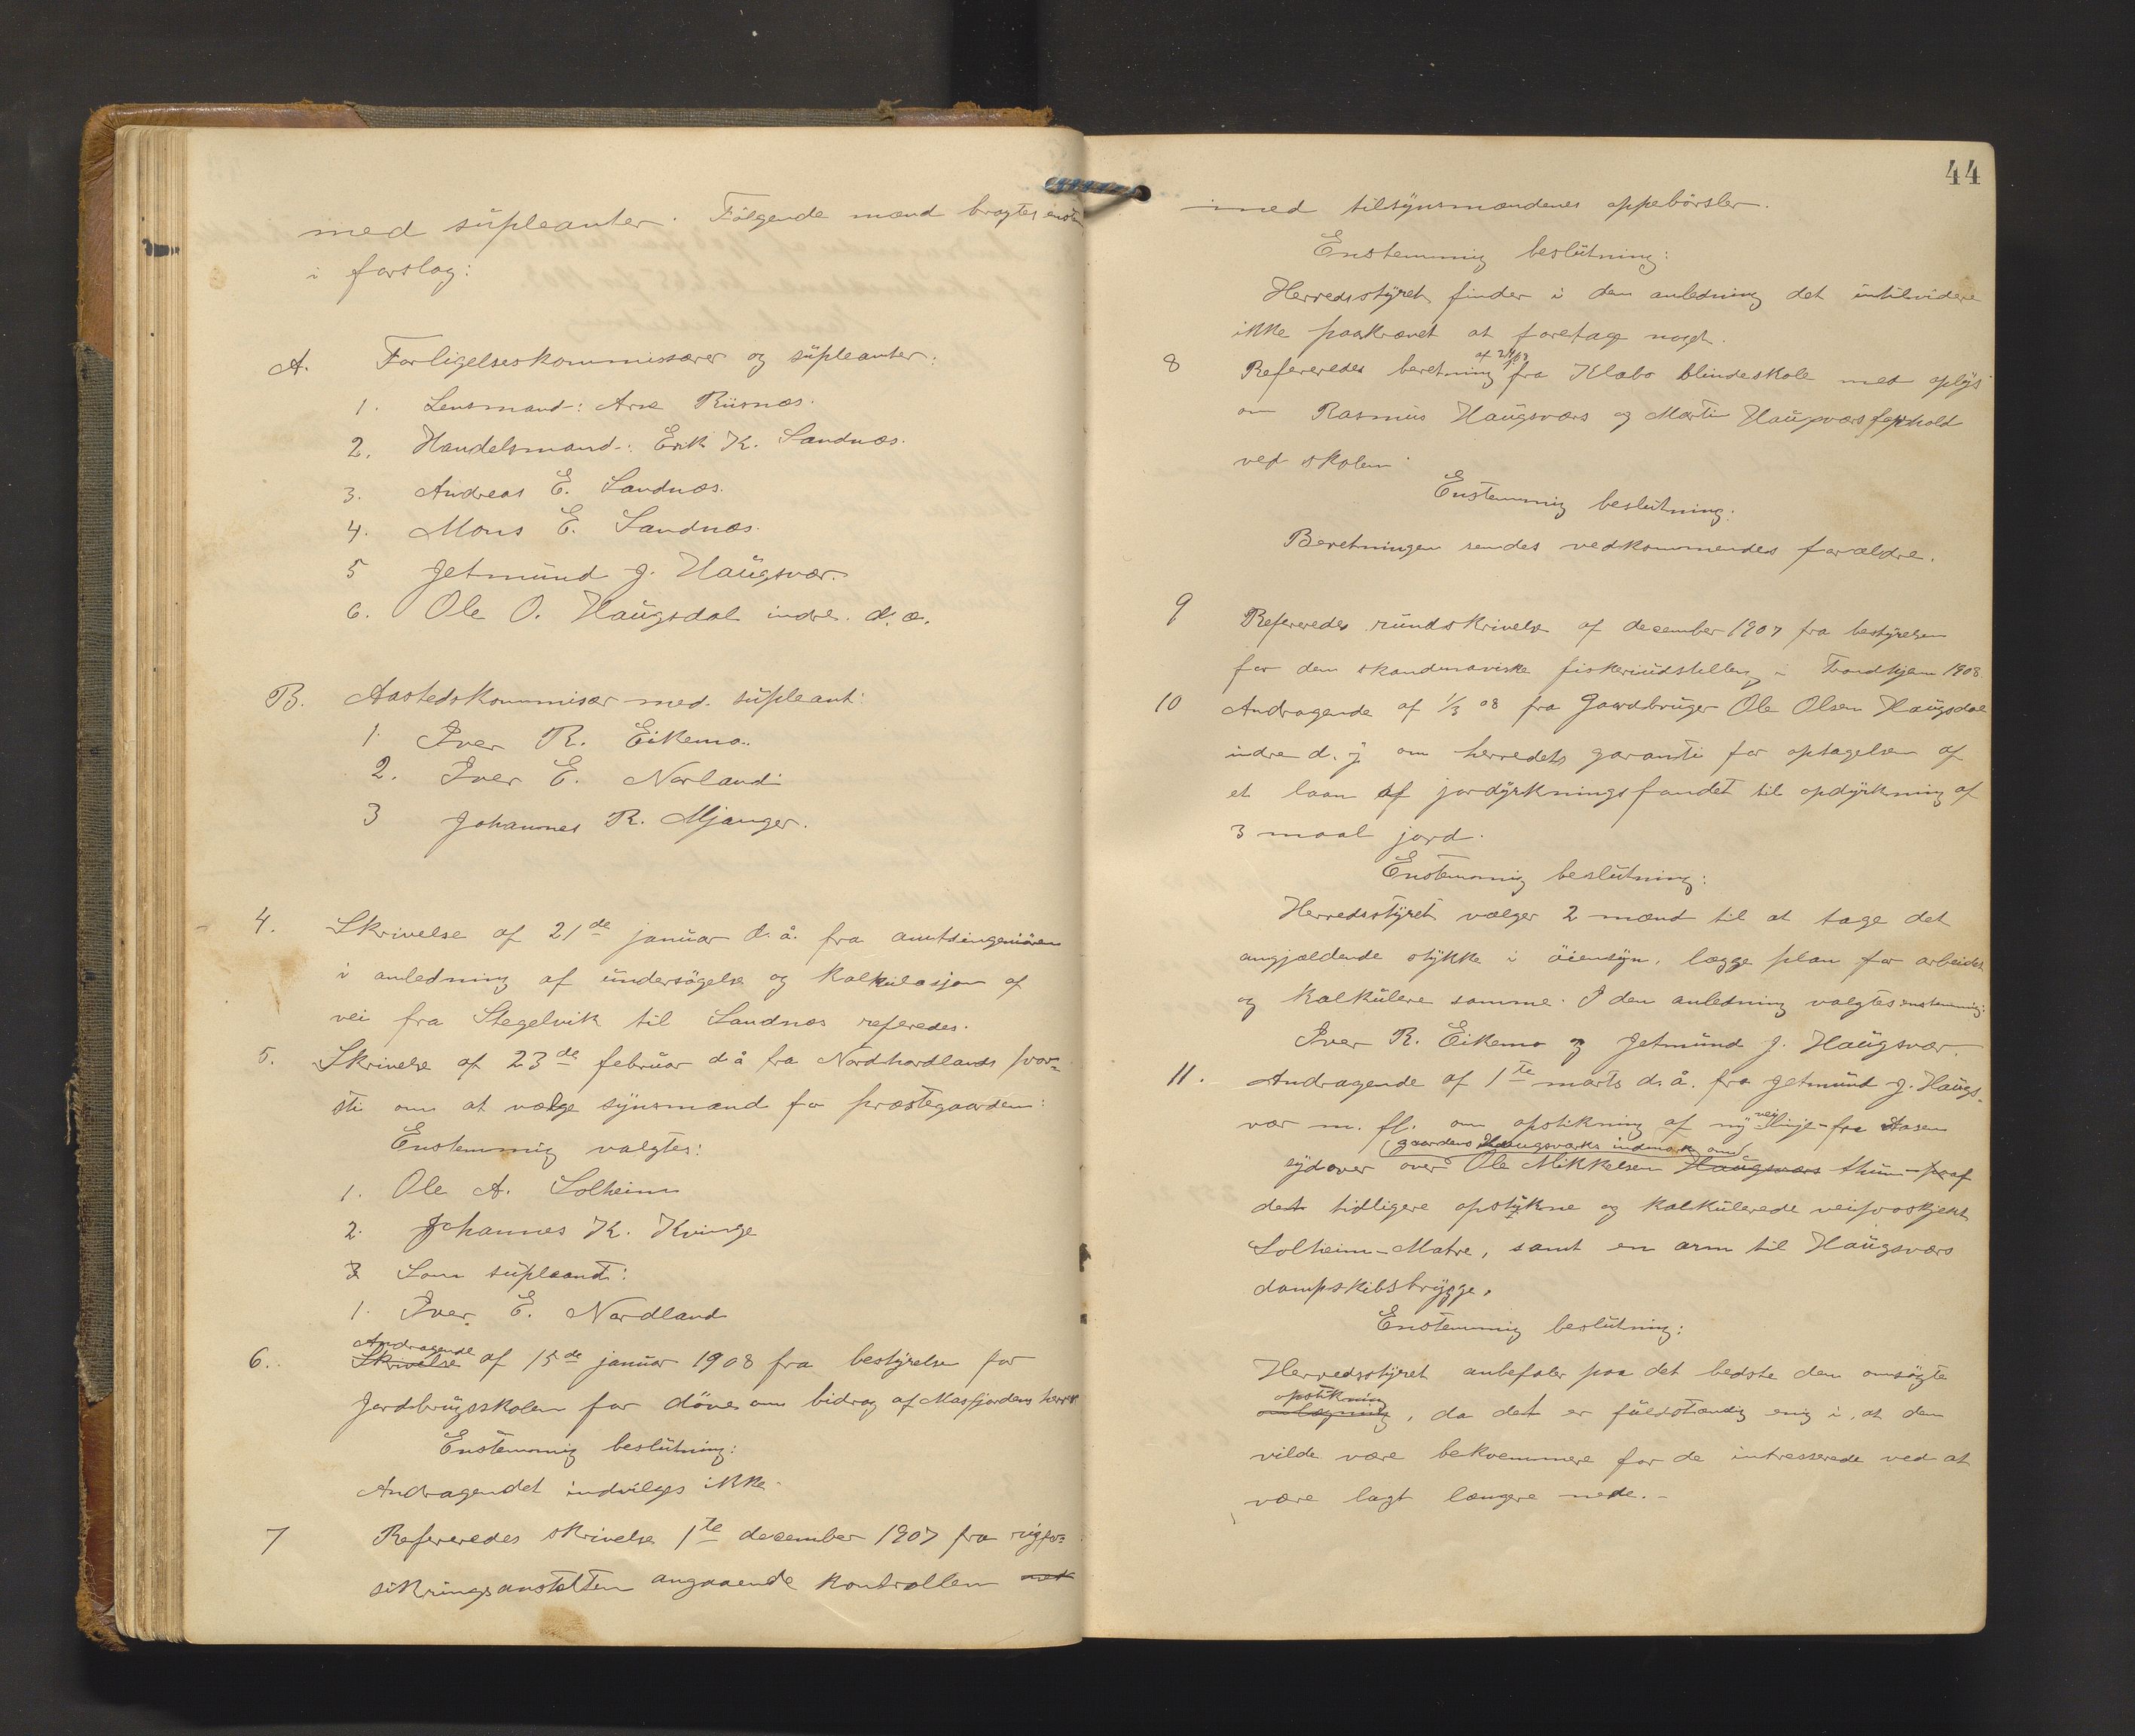 med supleanter. Følgende mænd bragtes enst
i forslag:
A. Forligelseskommissærer og supleanter:
1. Lensmand: Arne Risnæs.
2. Handelsmand: Erik K. Sandnæs.
3. Andreas E. Sandnæs.
4. Mons E. Sandnæs.
5 Jetmund J. Haugsvær.
6. Ole O. Haugsdal indre. d. æ.
B. Aastedskommisær med supleant:
1. Iver R. Eikemo.
2. Iver E. Norland
3 Johannes R. Mjanger.
4. Skrivelse af 21de januar d. å. fra amtsingeniøren
i anledning af undersøgelse og kalkulasjon af
vei fra Stegelvik til Sandnæs referedes.
5. Skrivelse af 23de februar d å fra Nordhordlands pro-
sti om at vælge synsmænd for præstegaarden:
Enstemmig valgtes:
1. Ole A. Solheim
2. Johannes K. Kvinge
3 Som supleant:
1. Iver E. Nordland
Andragende
6. Skrivelse af 15de januar 1908 fra bestyrelse for
Jordbrugsskolen for døve om bidrag af Masfjordens herre
Enstemmig beslutning:
Andragendet indvilges ikke.
7 Refereredes skrivelse 1te december 1907 fra rigsfor-
sikringsanstalten angaaende kontrollen med
44
med tilsynsmændenes oppebørsler.
Enstemmig beslutning:
Herredsstyret finder i den anledning det intilvidere
ikke paakrævet at foretage noget.
8 Refereredes beretning fra Klæbo blindeskole med oplys
om Rasmus Haugsværs og Martin Haugsværs ophold
ved skolen.
Enstemmig beslutning:
Beretningen sendes vedkommendes forældre.
9 Refereredes rundskrivelse af december 1907 fra bestyrelsen
for den skandinaviske fiskeriudstilling i Trondhjem 1908
10 Andragende af 1/3 08 fra Gaardbruger Ole Olsen Haugsdal
indre d. y. om herredets garanti for optagelsen af
et laan af jorddyrkningsfondet til opdyrkning af
3 maal jord.
Enstemmig beslutning:
Herredsstyret vælger 2 mænd til at tage det
angjældende stykke i øiensyn, lægge plan for arbeidet
og kalkulere samme. I den anledning valgtes enstemmig:
Iver R. Eikemo og Jetmund J. Haugsvær.
11. Andragende af 1te marts d. å. fra Jetmund J. Haugs-
vær m. fl. om opstikning af ny veilinje fra Aasen
gaardens Haugsværks indmark om
sydover over Ole Mikkelsen Haugsværs thun af
det tidligere opstukne og kalkulerede veiproskjekt
Solheim-Matre, samt en arm til Haugsværs
dampskibsbrygge.
Enstemmig beslutning:
Herredsstyret anbefaler paa det bedste den omsøgte
opstikning
omlægning, da det er fuldstændig enig i, at den
vilde være bekvemmere for de intresserede ved at
være lagt længere nede.-